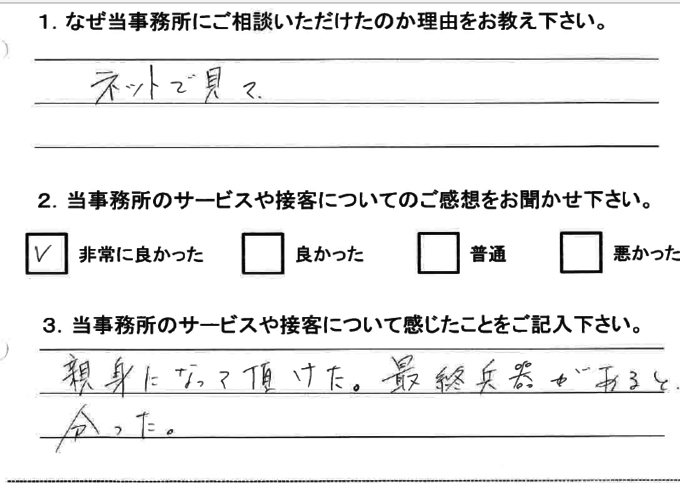 1. なぜ当事務所にご相談いただけたのか理由をお教え下さい。
ネットで見て.
2. 当事務所のサービスや接客についてのご感想をお聞かせ下さい。
V 非常に良かった 良かった 普通 悪かった
3. 当事務所のサービスや接客について感じたことをご記入下さい。
親身になって頂けた。最終兵器があると.
分った。